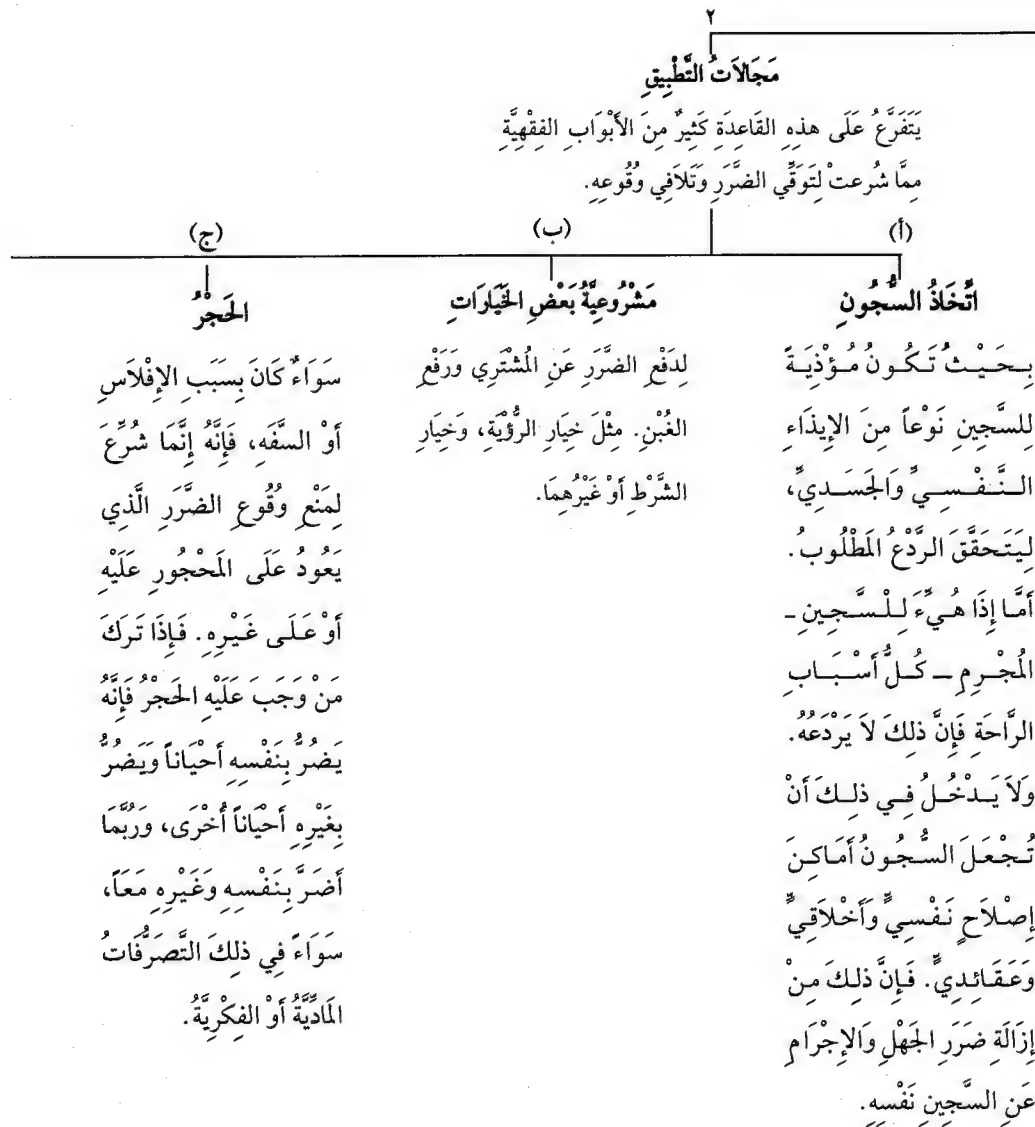 ٢
مَجَالاَتُ التَّطْبِيقِ
يَتَفَرَّعُ عَلَى هذِهِ القَاعِدَةِ كَثِيرٌ مِنَ الأَبْوَابِ الفِقْهِيَّةِ
مِمَّا شُرِعتْ لِتَوَقِّي الضَّرَرِ وَتَلاَفِي وُقُوعِهِ.
(أ)
اتِّخَاذُ السُّجُونِ
بِحَيْثُ تَكُونُ مُؤْذِيَةً
لِلسَّجِينِ نَوْعاً مِنَ الإِيذَاءِ
النَّفْسِيِّ وَالجَسَدِيِّ،
لِيَتَحَقَّقَ الرَّدْعُ المَطْلُوبُ.
أَمَّا إِذَا هُيِّءَ لِلْسَّجِينِ -
المُجْرِمِ - كُلُّ أَسْبَابِ
الرَّاحَةِ فَإِنَّ ذلِكَ لاَ يَرْدَعُهُ.
وَلاَ يَدْخُلُ فِي ذلِكَ أَنْ
تُجْعَلَ السُّجُونُ أَمَاكِنَ
إِصْلاَحٍ نَفْسِيٍّ وَأَخْلاَقِيٍّ
وَعَقَائِدِيٍّ. فَإِنَّ ذلِكَ مِنْ
إِزَالَةِ ضَرَرِ الجَهْلِ وَالإِجْرَامِ
عَنِ السَّجِينِ نَفْسِهِ.
(ب)
مَشْرُوعِيَّةُ بَعْضِ الخَيَارَاتِ
لِدَفْعِ الضَّرَرِ عَنِ المُشْتَرِي وَرَفْعِ
الغُبْنِ. مِثْلَ خِيَارِ الرُّؤْيَةِ، وَخِيَارِ
الشَّرْطِ أَوْ غَيْرُهِمَا.
(ج)
الحَجْرُ
سَوَاءٌ كَانَ بِسَبَبِ الإِفْلاَسِ
أَوْ السَّفَهِ، فَإِنَّهُ إِنَّمَا شُرِّعَ
لِمَنْعِ وُقُوعِ الضَّرَرِ الَّذِي
يَعُودُ عَلَى المَحْجُورِ عَلَيْهِ
أَوْ عَلَى غَيْرِهِ. فَإِذَا تَرَكَ
مَنْ وَجَبَ عَلَيْهِ الحَجْرُ فَإِنَّهُ
يَضُرُّ بِنَفْسِهِ أَحْيَاناً وَيَضُرُّ
بِغَيْرِهِ أَحْيَاناً أُخْرَى، وَرُبَّمَا
أَضَرَّ بِنَفْسِهِ وَغَيْرِهِ مَعَاً،
سَوَاءً فِي ذلِكَ التَّصَرُّفَاتُ
المَادِّيَّةُ أَوْ الفِكْرِيَّةُ.